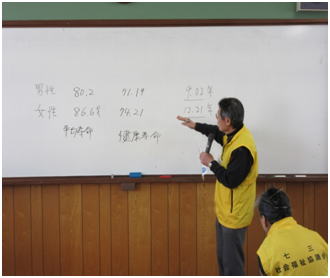 男性 80.2 71.19 9.02年
女性 86.6 74.21 12.21年
平均寿命 健康寿命
七
社会福祉協議会